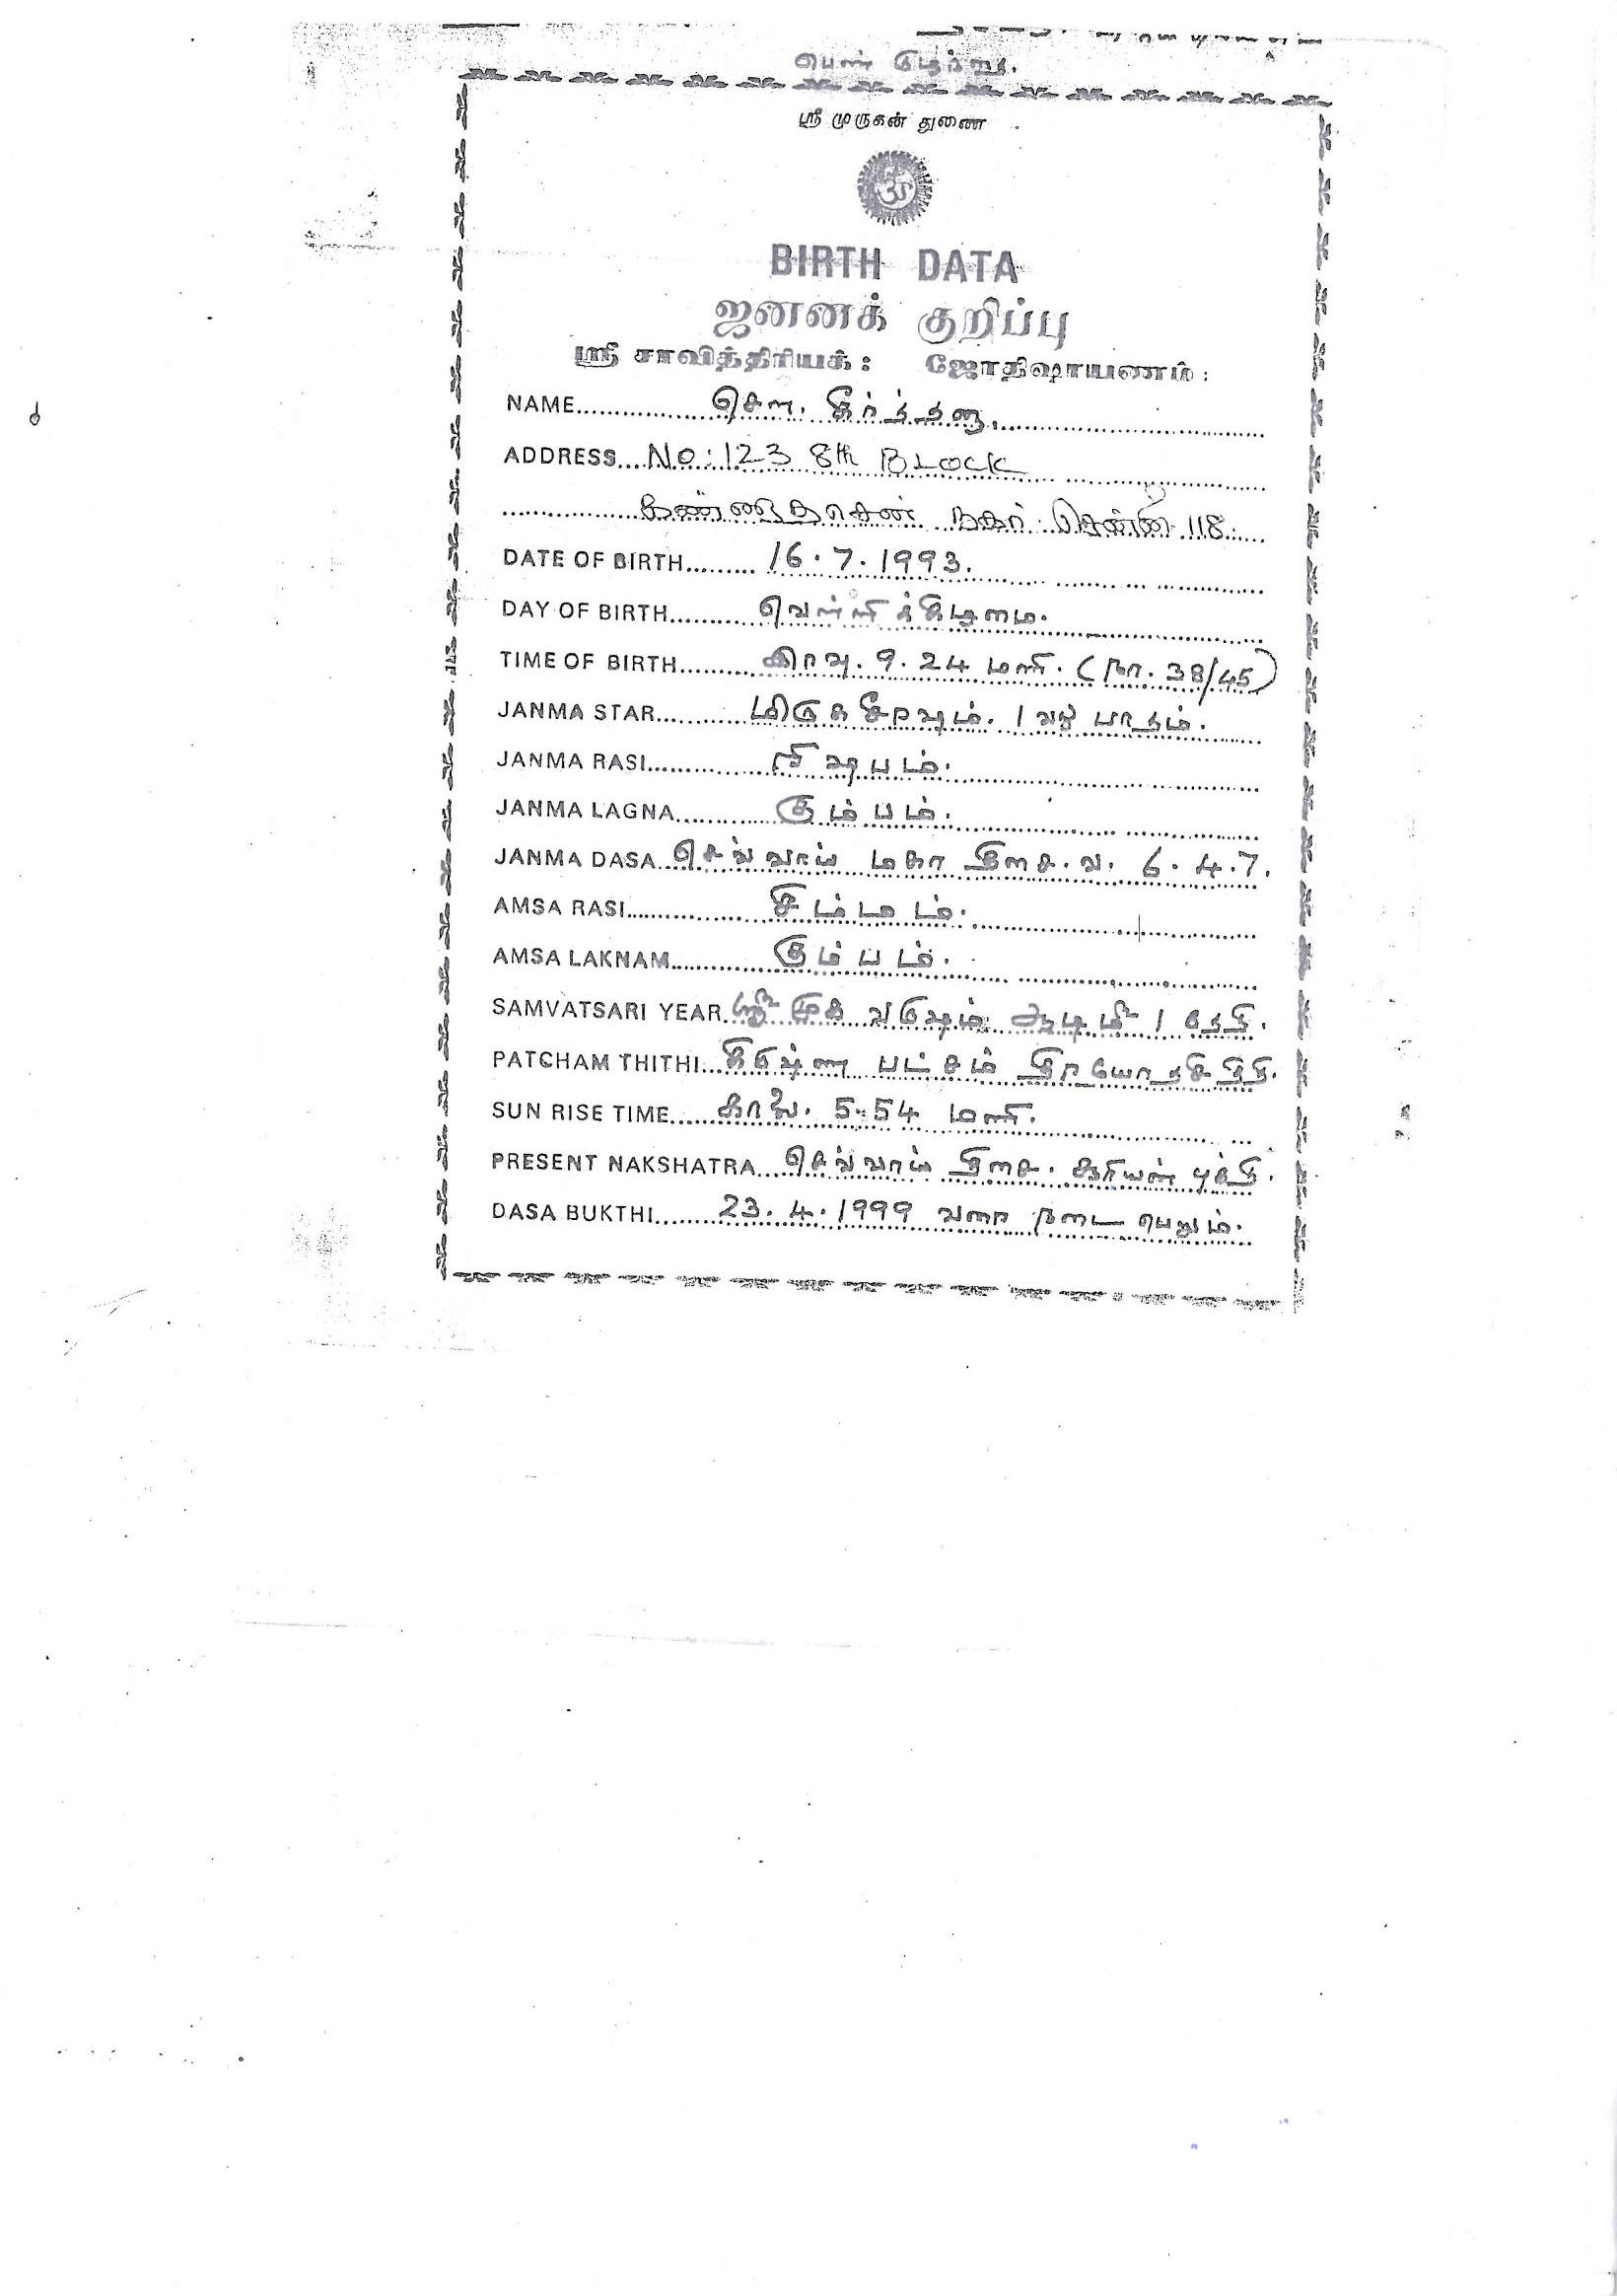 பெண் குழந்தை.
ஸ்ரீ முருகன் துணை
BIRTH DATA
ஜனனக் குறிப்பு
ஸ்ரீ சாவித்திரியக்: ஜோதிஷாயணம்:
NAME செள. கீர்த்தனா.
ADDRESS No: 123 8th BLOCK
கண்ணதாசன் நகர் சென்னை 118.
DATE OF BIRTH 16.7.1993.
DAY OF BIRTH வெள்ளிக்கிழமை.
TIME OF BIRTH இரவு. 9.24 மணி. (நா. 38/45)
JANMA STAR மிருகசீரஷம். 1 வது பாதம்.
JANMA RASI ரிஷபம்.
JANMA LAGNA கும்பம்.
JANMA DASA செவ்வாய் மகா திசை. வ. 6.4.7.
AMSA RASI சிம்மம்.
AMSA LAKNAM கும்பம்.
SAMVATSARI YEAR ஸ்ரீமுக வருஷம் ஆடி மீ 1 தேதி.
PATCHAM THITHI கிருஷ்ண பட்சம் திரயோதசி திதி.
SUN RISE TIME காலை. 5.54 மணி.
PRESENT NAKSHATRA செவ்வாய் திசை. சூரியன் புக்தி.
DASA BUKTHI 23.4.1999 வரை நடைபெறும்.